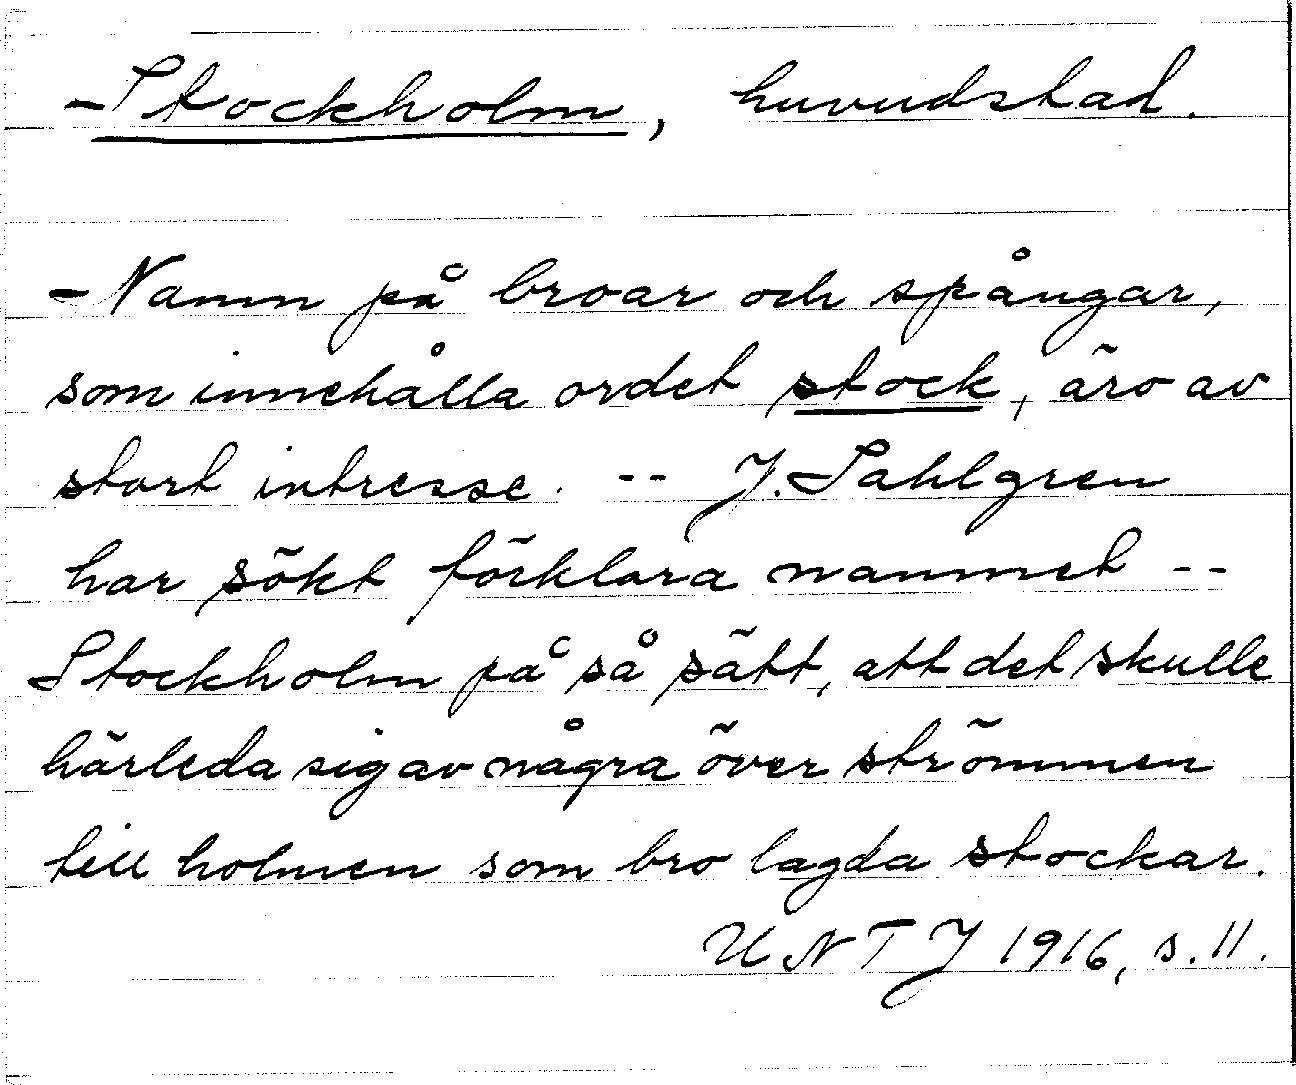 -Stockholm, huvudstad.
-Namn på broar och spångar,
som innehålla ordet stock, äro av
stort intresse. -- J. Sahlgren
har sökt förklara namnet --
Stockholm på så sätt, att det skulle
härleda sig av några över strömmen
till holmen som bro lagda stockar.
UNTJ 1916, s. 11.